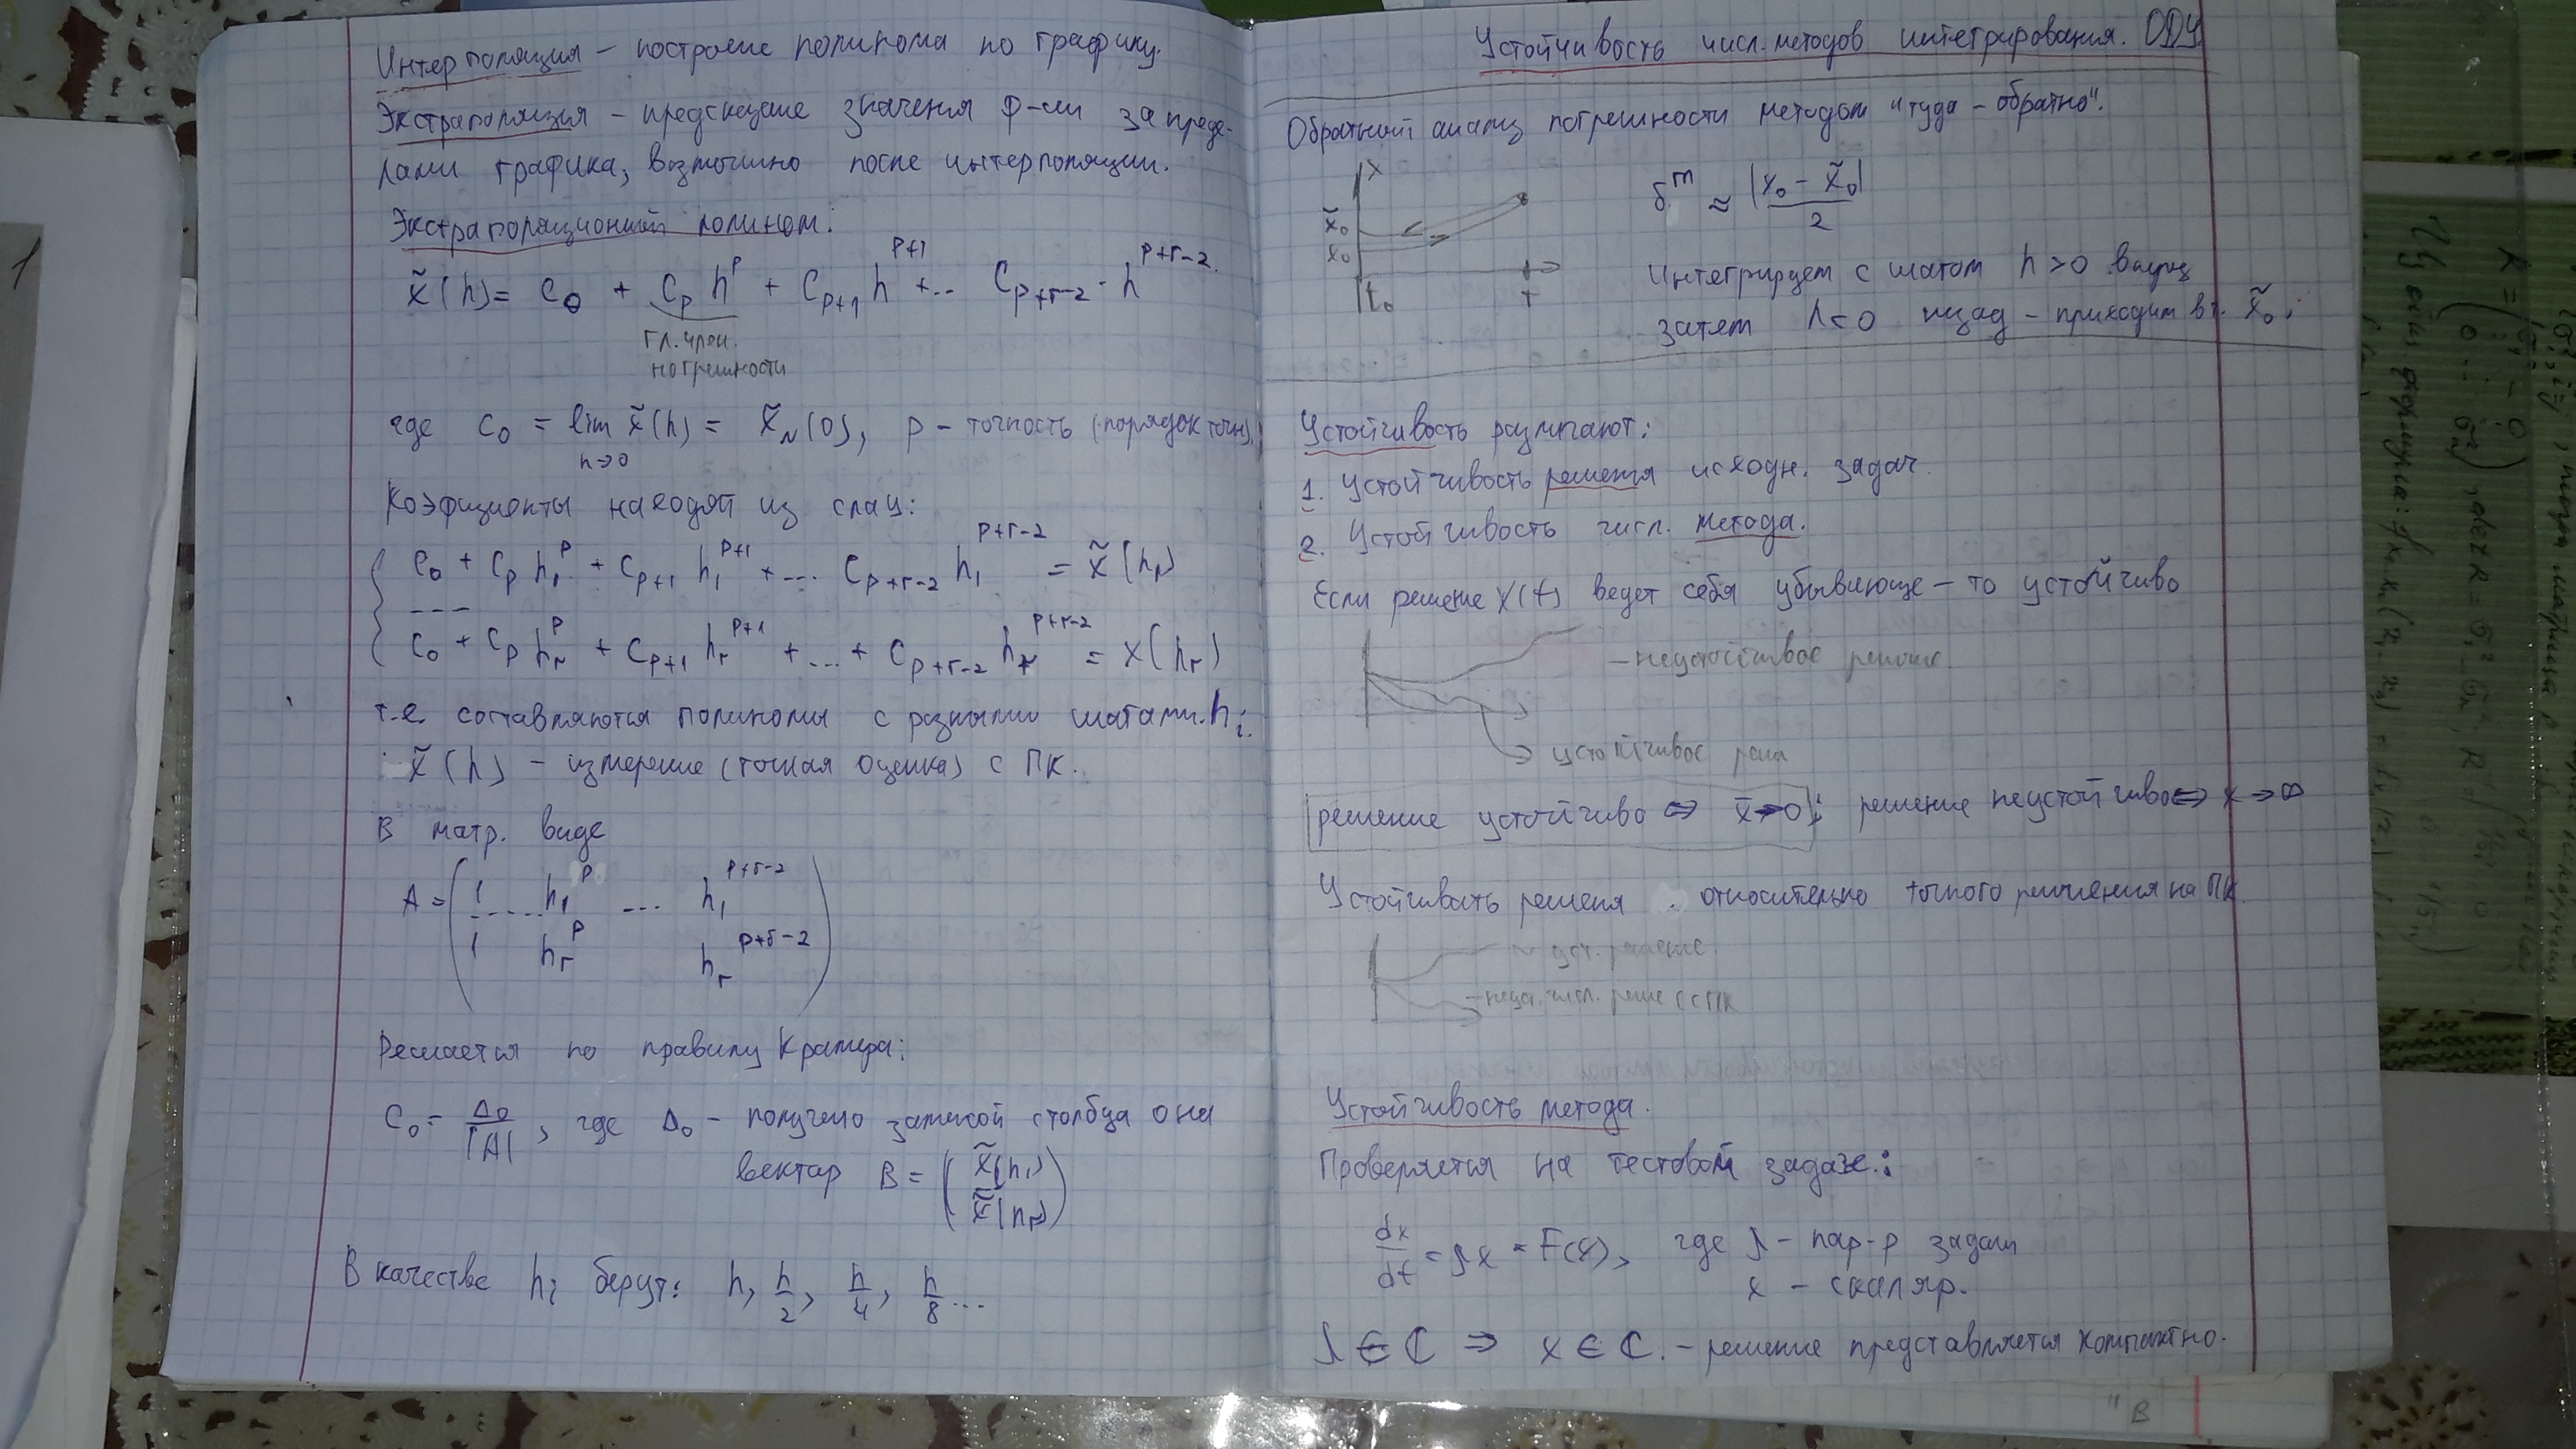 Интерполяция – построение полинома по графику.
Экстраполяция – предсказание значения ф-ии за преде-
лами графика, возможно после интерполяции.
Экстраполяционный полином:
x̃(h) = C₀ + Cₚhᵖ + Cₚ₊₁hᵖ⁺¹ + ... Cₚ₊ᵣ₋₂ · hᵖ⁺ʳ⁻².
гл. член.
погрешности
где C₀ = lim x̃(h) = x̃_N(0), p – точность (порядок точн),
h→0
Коэфициенты находят из слау:
{ C₀ + Cₚ h₁ᵖ + Cₚ₊₁ h₁ᵖ⁺¹ + ... Cₚ₊ᵣ₋₂ h₁ᵖ⁺ʳ⁻² = x̃(h₁)
---
{ C₀ + Cₚ hᵣᵖ + Cₚ₊₁ hᵣᵖ⁺¹ + ... + Cₚ₊ᵣ₋₂ hᵣᵖ⁺ʳ⁻² = x(hᵣ)
т.е. составляются полиномы с разными шагами hᵢ.
x̃(h) – измерение (точная оценка) с ПК.
В матр. виде
A = ( 1 h₁ᵖ ... h₁ᵖ⁺ʳ⁻²
.....
1 hᵣᵖ hᵣᵖ⁺ʳ⁻² )
Решается по правилу Крамера:
C₀ = Δ₀/|A|, где Δ₀ – получено заменой столбца 0 на
вектор B = ( x̃(h₁)
x̃(hᵣ) )
В качестве hᵢ берут: h, h/2, h/4, h/8 ...
Устойчивость числ. методов интегрирования. ОДУ
Обратный анализ погрешности методом "туда – обратно".
x
x̃₀
x₀
t₀
t
δᵐ ≈ |x₀ – x̃₀| / 2
Интегрируем с шагом h>0 вперед
затем h<0 назад – приходим в т. x̃₀.
Устойчивость различают:
1. Устойчивость решения исходн. задач.
2. Устойчивость числ. метода.
Если решение X(t) ведет себя убывающе – то устойчиво
– неустойчивое решение
устойчивое реш
решение устойчиво ⇔ x→0; решение неустойчиво ⇔ x→∞
Устойчивость решения относительно точного решения на ПК
~ уст. решение.
Устойчивость метода.
Проверяется на тестовой задаче:
dx/dt = λx = F(x), где λ – пар-р задачи
x – скаляр.
λ ∈ C ⇒ x ∈ C. – решение представляется комплексно.
"В